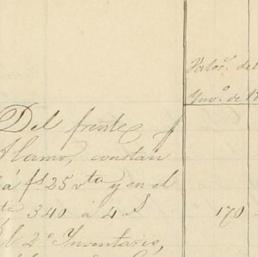 Valor. del
Ynv.º de 1
Del frente
Alamo, constan
á fs 25 vta y en el
340 á 4 $ 170
2º Inventario,